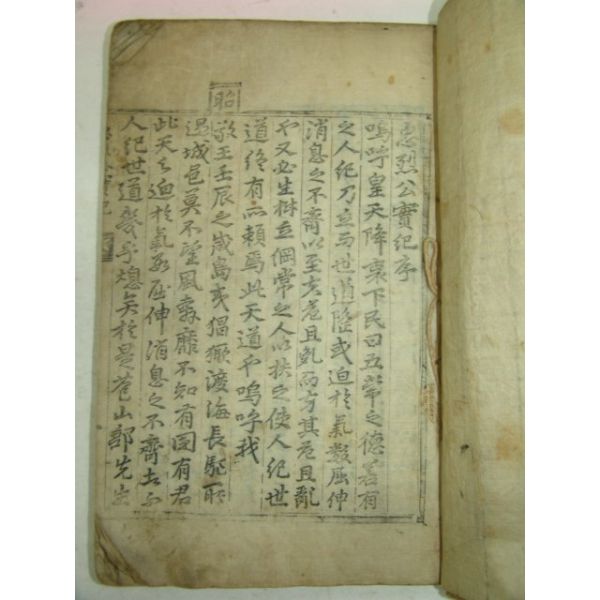 忠烈公實紀序
嗚呼皇天降衷下民曰五常之德若有
之人紀乃立而世道隆或迫於氣數屈伸
消息之不齊以至於危且亂而方其危且亂
也又必生樹立綱常之人以扶之使人紀世
道終有所賴焉此天道也嗚呼我
昭敬王壬辰之歲島夷猖獗渡海長驅所
過城邑莫不望風奔靡不知有國有君
此天之迫於氣數屈伸消息之不齊者而
人紀世道幾乎熄矣於是苞山郭先生